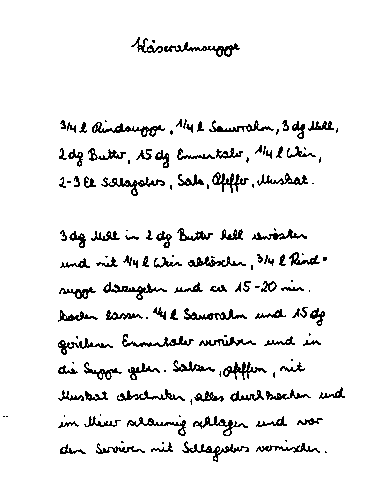 Käserahmsuppe
3/4 l Rindsuppe, 1/4 l Sauerrahm, 3 dg Mehl,
2 dg Butter, 15 dg Emmentaler, 1/4 l Wein,
2-3 El Schlagobers, Salz, Pfeffer, Muskat.
3 dg Mehl in 2 dg Butter hell anrösten
und mit 1/4 l Wein ablöschen, 3/4 l Rind=
suppe dazugeben und ca 15-20 min.
kochen lassen. 1/4 l Sauerrahm und 15 dg
geriebenen Emmentaler verrühren und in
die Suppe geben. Salzen, pfeffern, mit
Muskat abschmecken, alles durchkochen und
im Mixer schaumig schlagen und vor
dem Servieren mit Schlagobers vermischen.